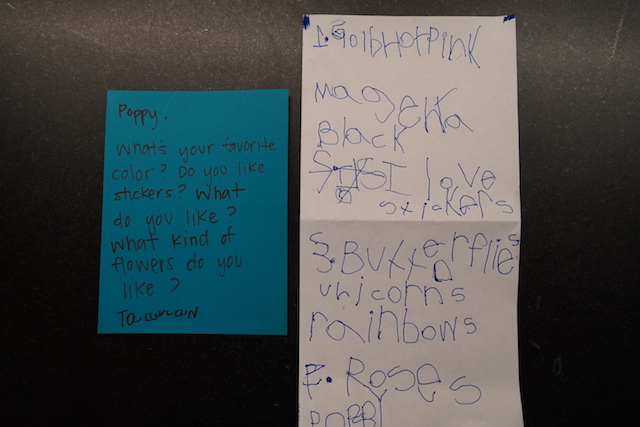 Poppy.
What's your favorite
color? Do you like
stickers? What
do you like?
What kind of
flowers do you
like?
1. Golb Hot Pink
Magenta
Black
I love
stickers
3. Butterflies
unicorns
rainbows
Roses
POPPY